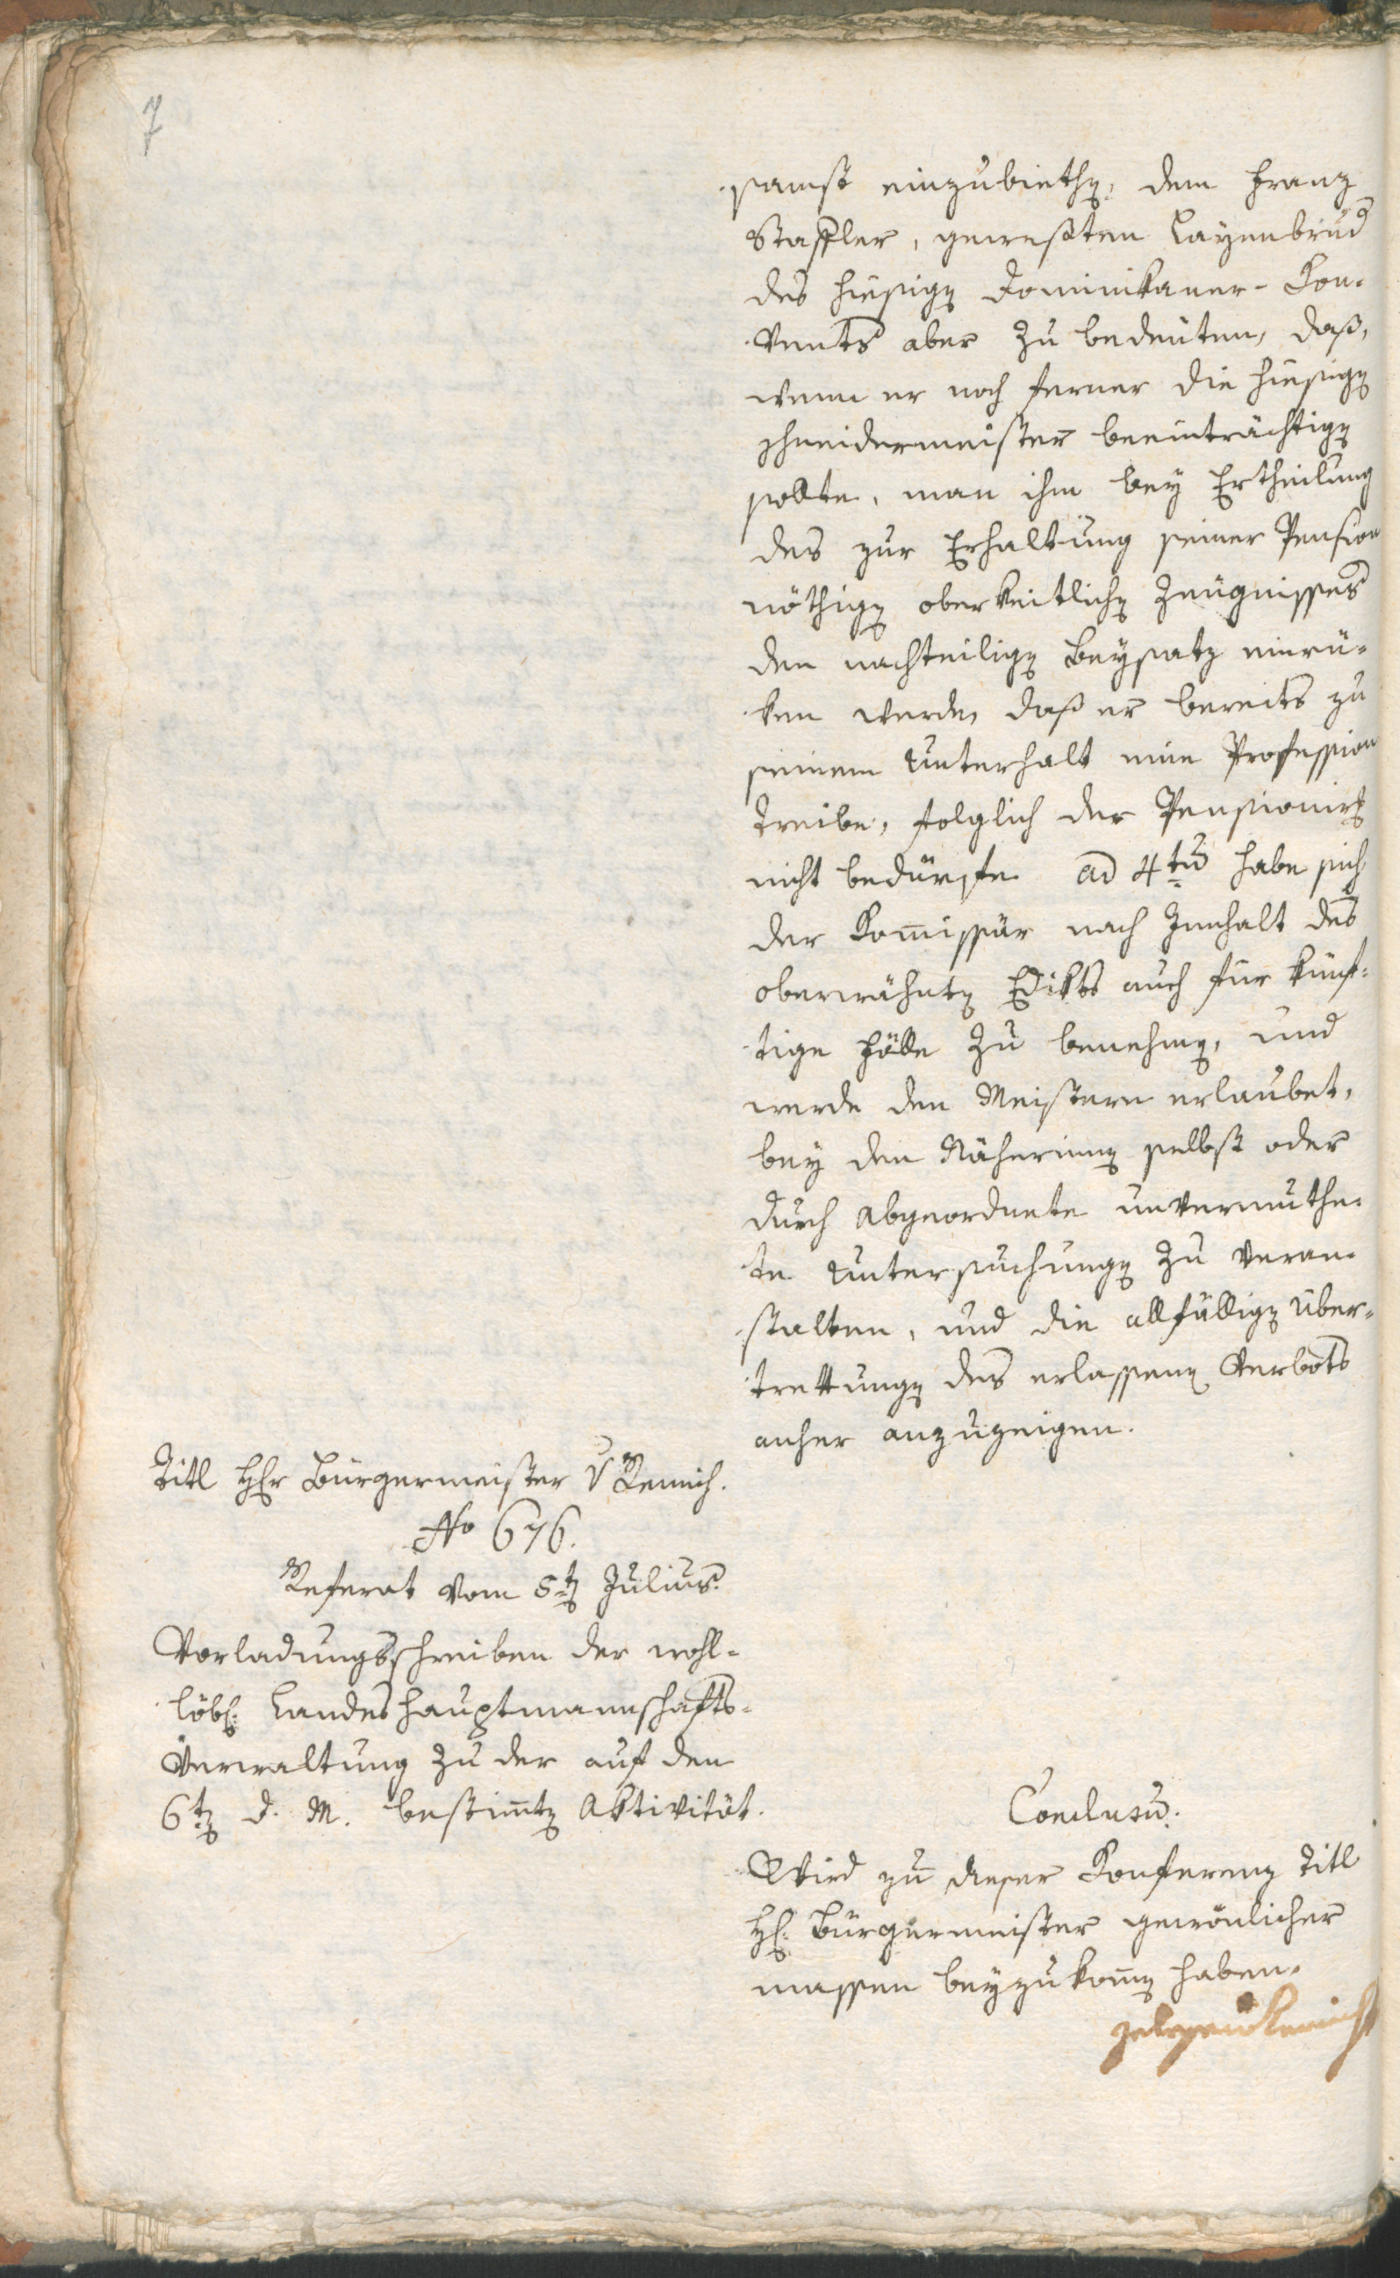 7
samst einzubiethen, dem Franz
Staffler, gewesten Layenbrud
des hiesigen Dominikaner-Con-
vents aber zu bedeuten, daß,
wenn er noch ferner die hiesigen
Schneidermeister beeinträchtigen
sollte, man ihm bey Ertheilung
des zur Erhaltung seiner Pension
nöthigen oberkeitlichen Zeugnisses
den nachteiligen Beysatz einrü-
ken werde, daß er bereits zu
seinem Unterhalt eine Profession
treibe, folglich der Pensionirung
nicht bedürfe. ad 4tū habe sich
der Kom̄issär nach Innhalt des
oberwähnten Edikts auch für künf-
tige Fälle zu benehmen, und
werde den Meistern erlaubet,
bey den Näherinnen selbst oder
durch Abgeordnete unvermuthe-
te Untersuchungen zu veran-
stalten, und die allfälligen Über-
trettungen des erlassenen Verbots
anher anzuzeigen.
Titl Hr Bürgermeister v Remich.
No 676.
Referat vom 5ten Julius.
Vorladungsschreiben der wohl-
löbl: Landeshauptmannschafts-
Verwaltung zu der auf den
6ten d. M. bestim̄ten Aktivität.
Conclusū:
Wird zu dieser Konferenz Titl
H: Bürgermeister gewönlicher
massen beyzukom̄en haben.